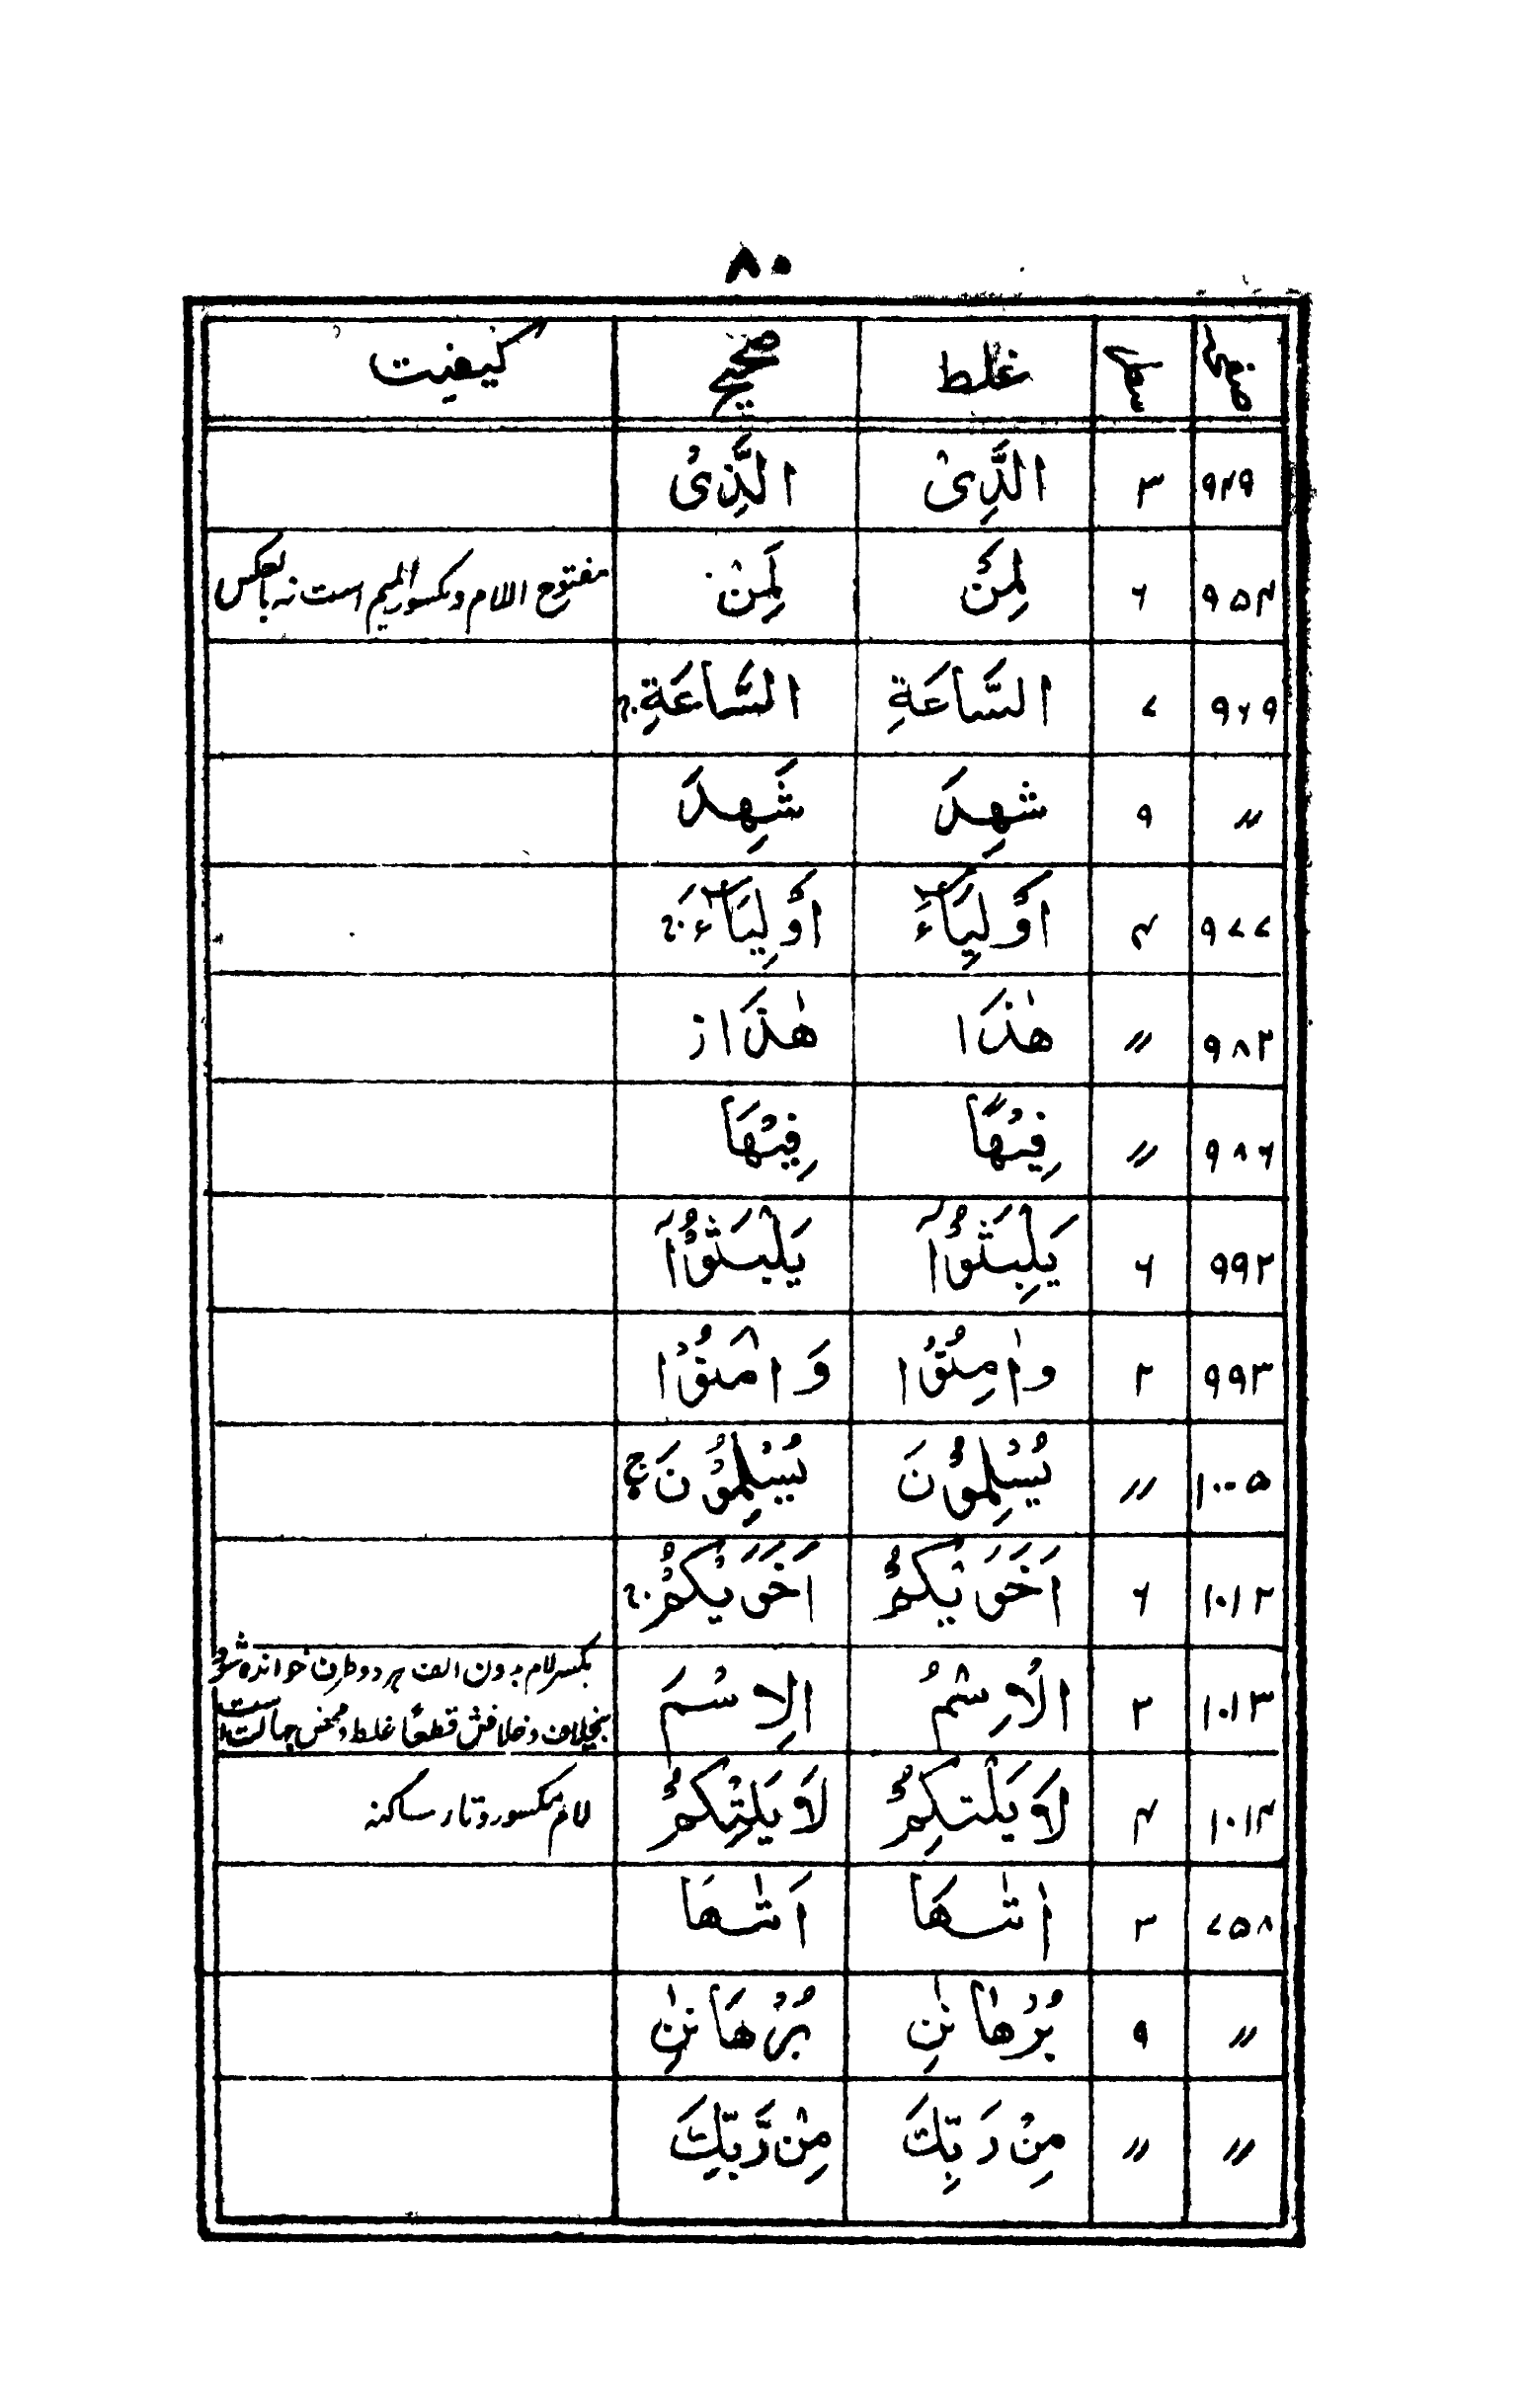 ۸۰
صفحہ سطر غلط صحیح کیفیت
۹۴۹ ۳ الَّدِیْ الَّذِیْ
۹۵۴ ۶ لِمَنْ لَمِنْ مفتوح اللام ومکسور المیم است نہ بالعکس
۹۶۹ ۷ السَّاعَةِ السَّاعَةِ
〃 ۹ شهِدَ شَهِدَ
۹۷۷ ۴ اَوْلِیَآءَ اَوْلِیَآءَ
۹۸۲ 〃 هٰذَا هٰذَا ز
۹۸۶ 〃 فِیْهًا فِیْهَا
۹۹۲ ۶ یَلِبَثُوْۤا یَلْبَثُوْۤا
۹۹۳ ۲ وٰامِنُوْا وَاٰمَنُوْا
۱۰۰۵ 〃 یُسْلِمُوْنَ یُسْلِمُوْنَ ج
۱۰۱۲ ۶ اَخَوَیْکُمْ اَخَوَیْکُمْ
۱۰۱۳ ۲ الْاِسْمُ الِاسْمَ بکسر لام بدون الف ہر دو طرف خواندہ شود
بخلاف وخلافش قطعًا غلط ومحض جہالت است
۱۰۱۴ ۴ لَا یَلْتکِمْ لَا یَلِتْکُمْ لام مکسور وتاء ساکنہ
۷۵۸ ۳ اٰتٰىهَا اَتٰىهَا
〃 ۹ بُرْهٰانٰنِ بُرْهَانٰنِ
〃 〃 مِنْ رَبِّكَ مِنْ رَّبِّكَ